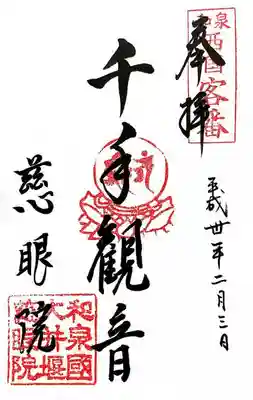 奉拝
和泉
西国客番
平成卅年二月三日
千手観音
慈眼院
和泉國
大井堰
慈眼院